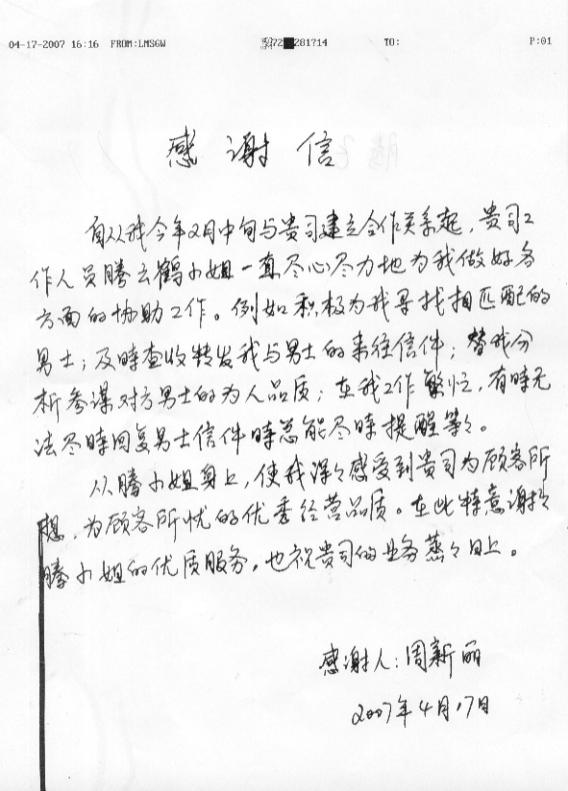 04-17-2007 16:16 FROM:LMSGW 281714 TO: P:01
感谢信
自从我今年2月中旬与贵司建立合作关系起，贵司工
作人员腾云鹤小姐一直尽心尽力地为我做好各
方面的协助工作。例如积极为我寻找相匹配的
男士；及時查收转发我与男士的来往信件；替我分
析参谋对方男士的为人品质；在我工作繁忙，有時无
法尽時回复男士信件時总能尽時提醒等々。
从腾小姐身上，使我深々感受到贵司为顾客所
想，为顾客所忧的优秀经营品质。在此特意谢谢
腾小姐的优质服务，也祝贵司的业务蒸々日上。
感谢人：周新丽
2007年4月17日